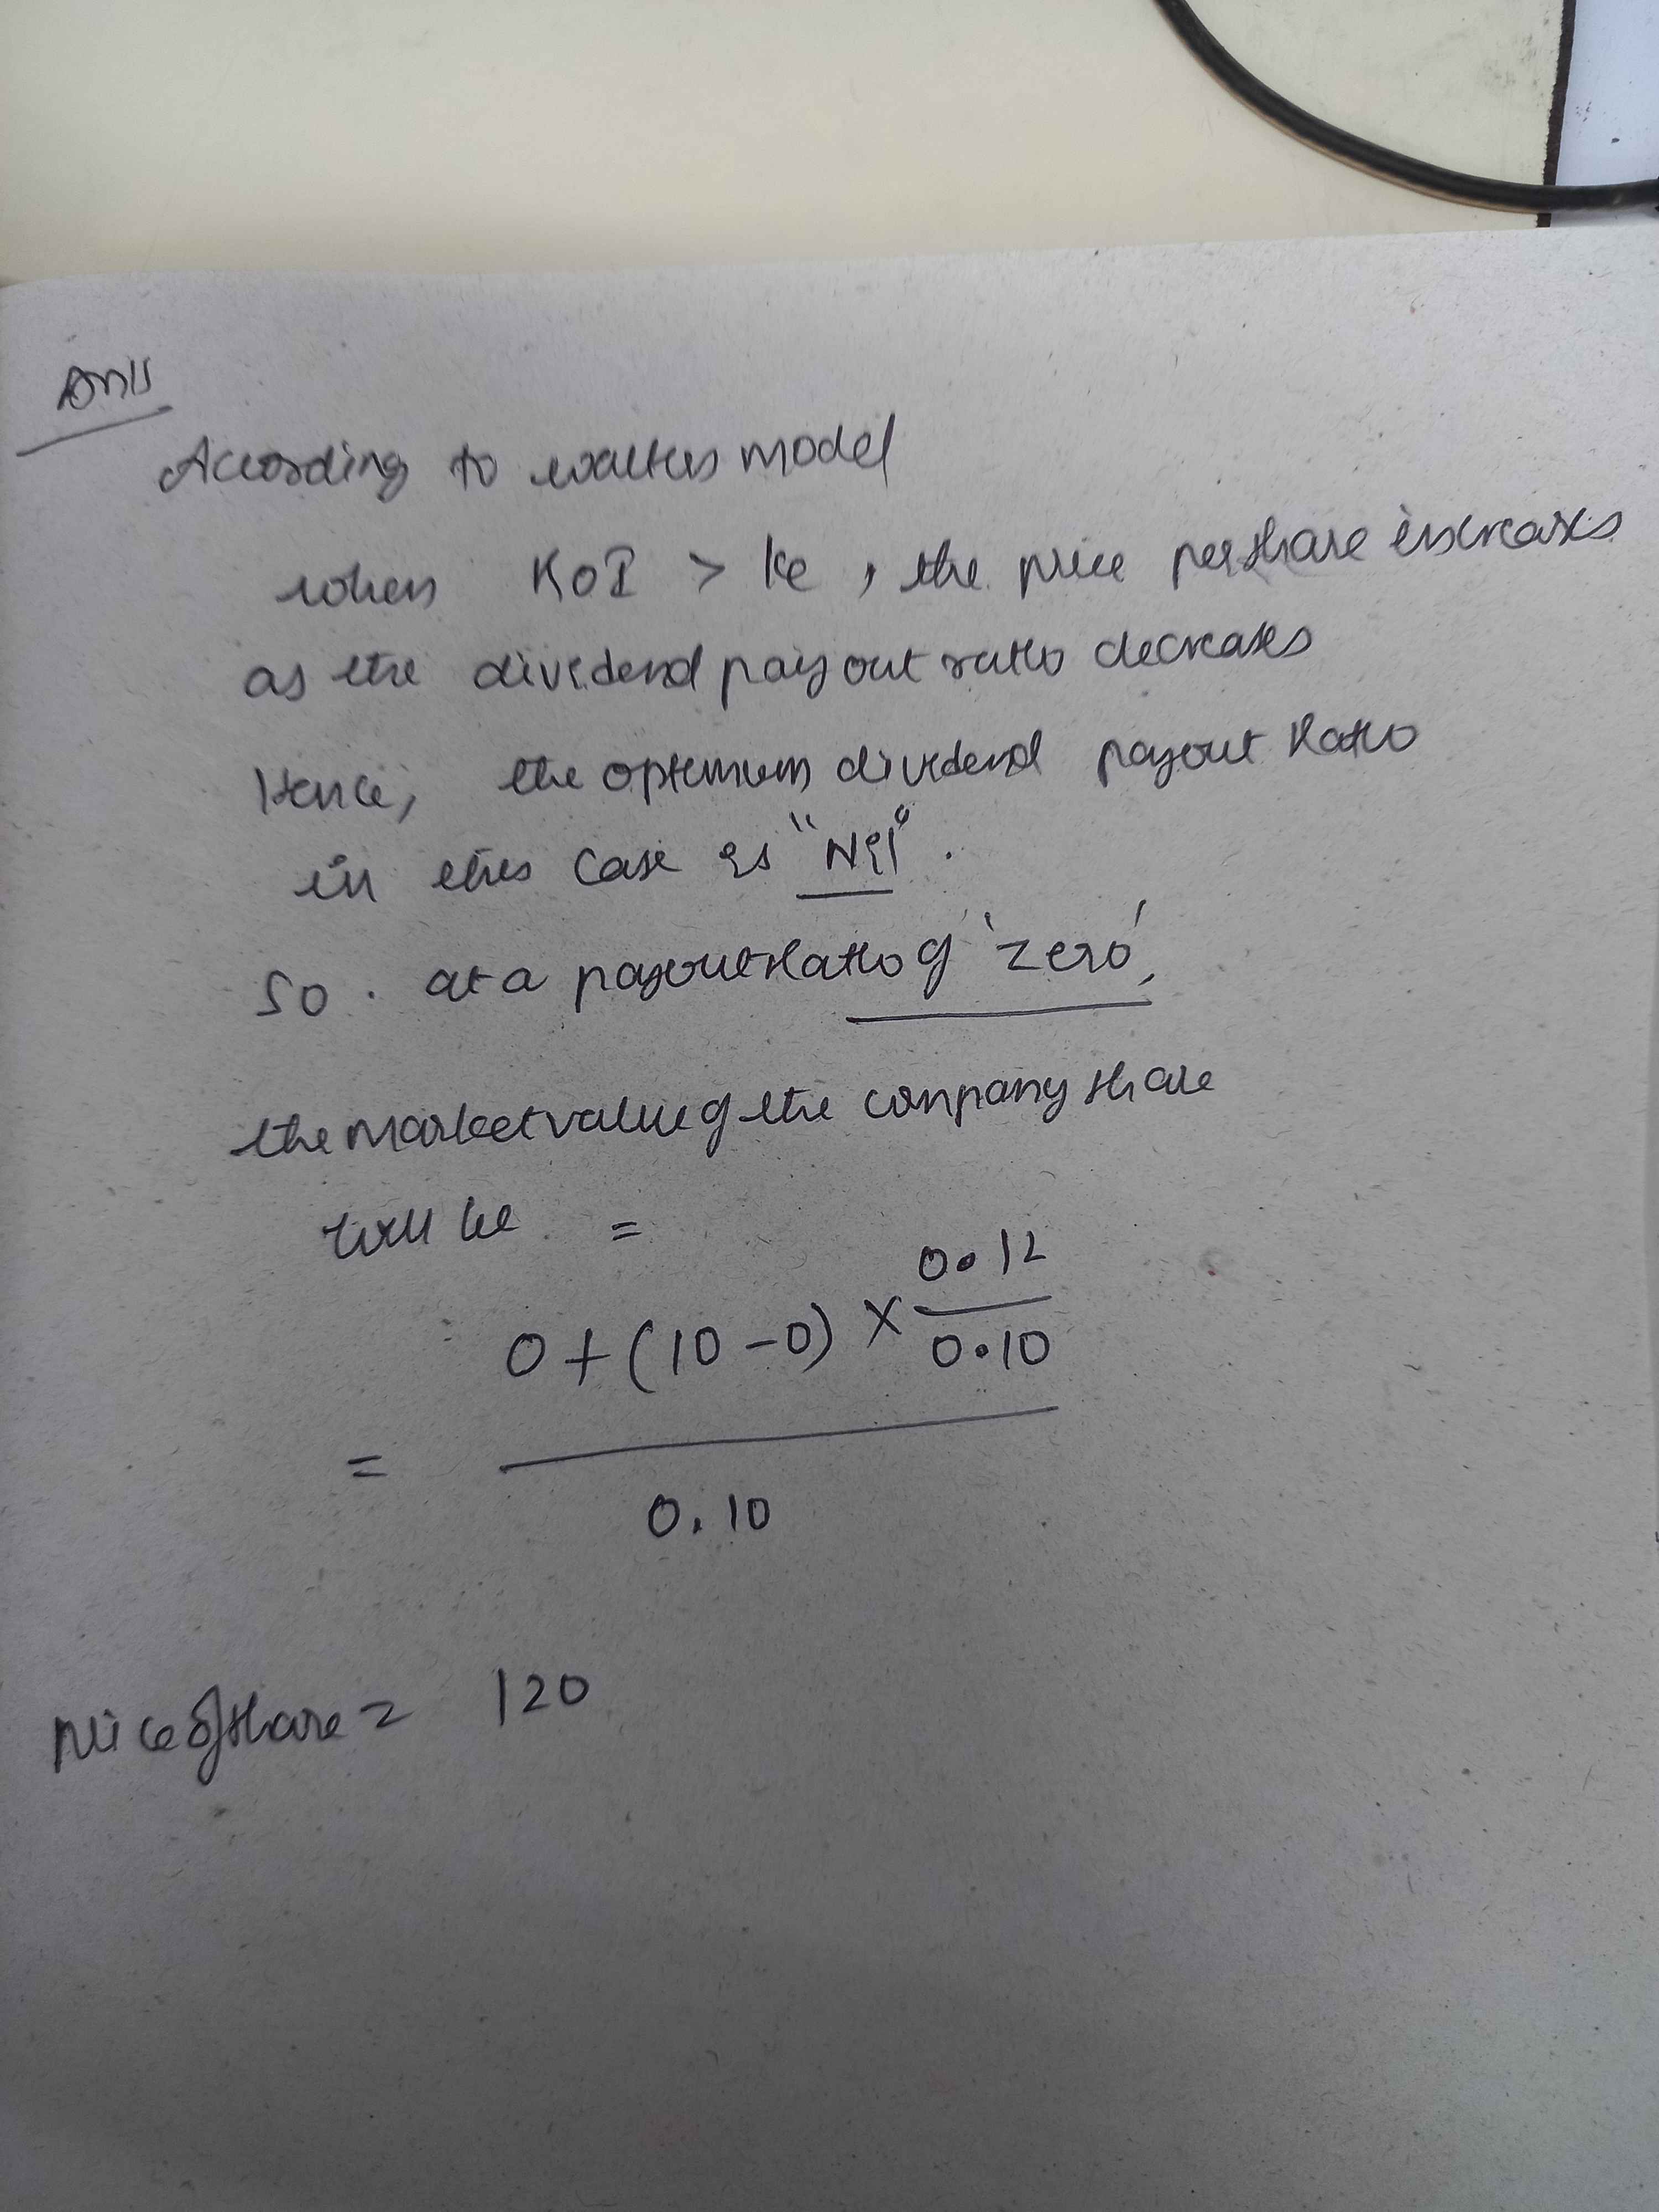 Ans
According to walters model
when ROI > Ke, the price per share increases
as the dividend payout ratio decreases
Hence, the optimum dividend payout Ratio
in this case is "Nil".
So. at a payout Ratio of 'zero',
the market value of the company share
will be =
0.12
0 + (10 - 0) × ———
0.10
= ———
0.10
price of share = 120